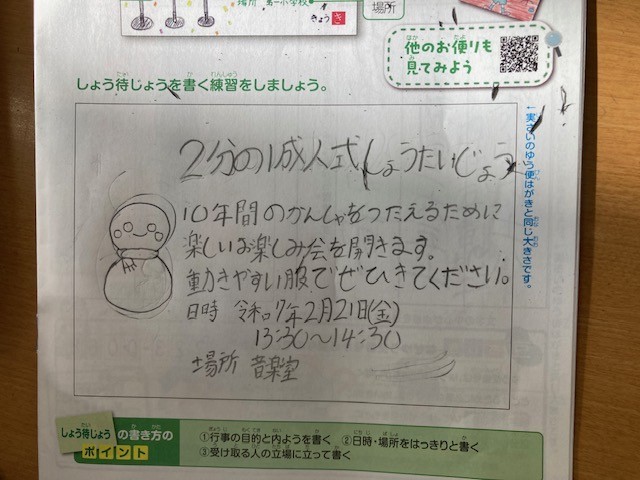 場所 第一小学校
きょう き
場所
他のお便りも
見てみよう
しょう待じょうを書く練習をしましょう。
2分の1成人式しょうたいじょう
10年間のかんしゃをつたえるために
楽しいお楽しみ会を開きます。
動きやすい服でぜひきてください。
日時 令和7年2月21日(金)
13:30〜14:30
場所 音楽室
↑実さいのゆう便はがきと同じ大きさです。
しょう待じょうの書き方の
ポイント
①行事の目的と内ようを書く ②日時・場所をはっきりと書く
③受け取る人の立場に立って書く